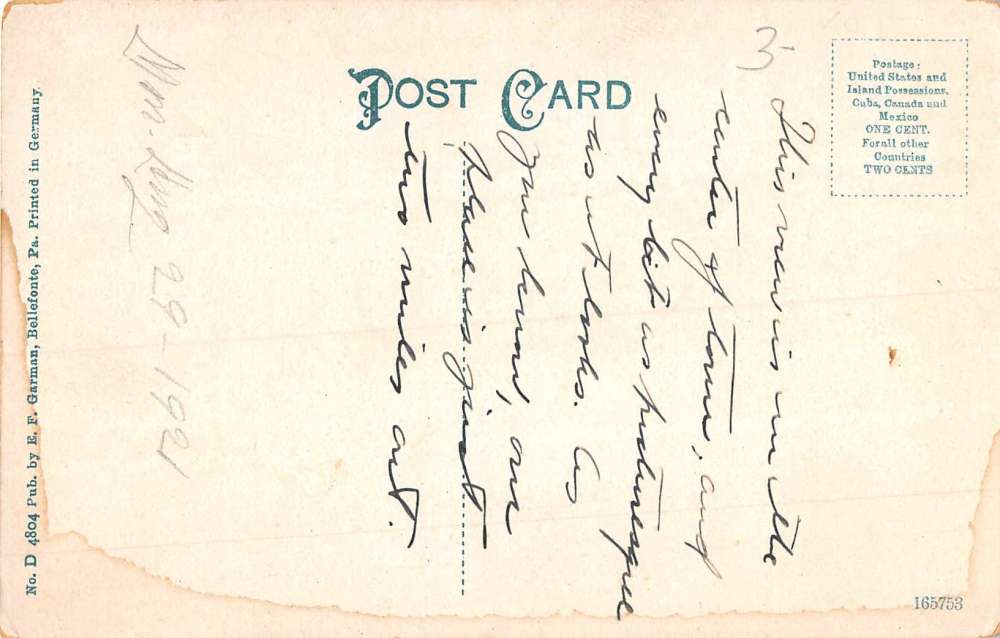 POST CARD
Postage:
United States and
Island Possessions,
Cuba, Canada and
Mexico
ONE CENT.
For all other
Countries
TWO CENTS
5
This view is in the
center of town, and
every bit as picturesque
as it looks. As
you know, our
place is just
two miles out.
29-1921
No. D 4804 Pub. by E. F. Garman, Bellefonte, Pa. Printed in Germany.
165753